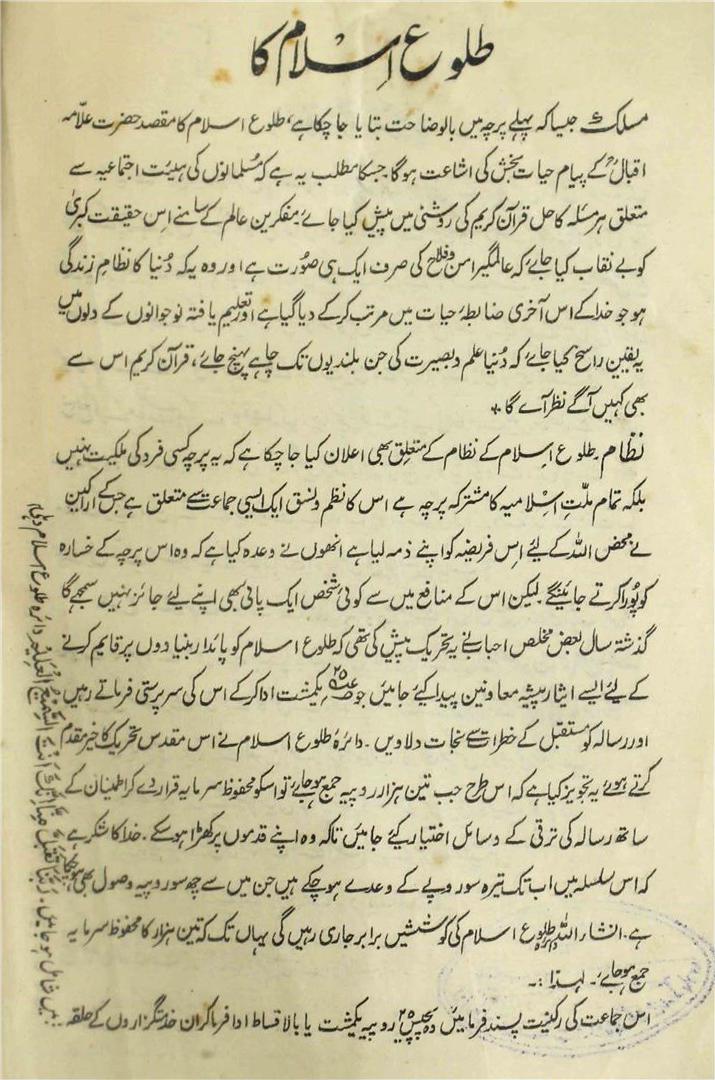 طلوع اسلام کا
مسلک جیسا کہ پہلے پرچہ میں بالوضاحت بتایا جا چکا ہے، طلوع اسلام کا مقصد حضرت علامہ
اقبالؒ کے پیام حیات بخش کی اشاعت ہوگا۔ جسکا مطلب یہ ہے کہ مسلمانوں کی ہیئت اجتماعیہ سے
متعلق ہر مسئلہ کا حل قرآن کریم کی روشنی میں پیش کیا جائے۔ مفکرین عالم کے سامنے اس حقیقت کبریٰ
کو بے نقاب کیا جائے کہ عالمگیر امن وفلاح کی صرف ایک ہی صورت ہے اور وہ یہ کہ دُنیا کا نظام زندگی
ہو جو خدا کے اس آخری ضابطۂ حیات میں مرتب کرکے دیا گیا ہے اور تعلیم یافتہ نوجوانوں کے دلوں میں
یہ یقین راسخ کیا جائے کہ دُنیا علم و بصیرت کی جن بلندیوں تک چاہے پہنچ جائے، قرآن کریم اس سے
بھی کہیں آگے نظر آے گا
نظام۔ طلوع اِسلام کے نظام کے متعلق بھی اعلان کیا جا چکا ہے کہ یہ پرچہ کسی فرد کی ملکیت نہیں
بلکہ تمام ملّتِ اِسلامیہ کا مشترکہ پرچہ ہے اس کا نظم ونسق ایک ایسی جماعت سے متعلق ہے جس کے اراکین
نے محض اللہ کے لئے اِس فریضہ کو اپنے ذمہ لیا ہے انھوں نے وعدہ کیا ہے کہ وہ اس پرچہ کے خسارہ
کو پُورا کرتے جائینگے لیکن اس کے منافع میں سے کوئی شخص ایک پائی بھی اپنے لئے جائز نہیں سمجھے گا
گذشتہ سال بعض مخلص احباب نے یہ تحریک پیش کی تھی کہ طلوع اسلام کو پائدار بنیادوں پر قایم کرنے
کے لئے ایسے ایثار پیشہ معاونین پیدا کیے جائیں جو ۲۵ یکمشت ادا کرکے اس کی سرپرستی فرماتے رہیں
اور رسالہ کو مستقبل کے خطرات سے نجات دلاویں۔ دائرہ طلوع اسلام نے اس مقدس تحریک کا خیر مقدم
کرتے ہوئے یہ تجویز کیا ہے کہ اس طرح جب تین ہزار روپیہ جمع ہو جائے تو اسکو محفوظ سرمایہ قرار دے کر اطمینان کے
ساتھ رسالہ کی ترقی کے وسائل اختیار کیے جائیں تاکہ وہ اپنے قدموں پر کھڑا ہو سکے۔ خدا کا شکر ہے
کہ اس سلسلہ میں اب تک تیرہ سو روپے کے وعدے ہو چکے ہیں جن میں سے چھ سو روپیہ وصول بھی ہو چکا
ہے۔ انشاء اللہ دائرہ طلوع اسلام کی کوششیں برابر جاری رہیں گی یہاں تک کہ تین ہزار کا محفوظ سرمایہ
جمع ہو جائے۔ لہذا :۔
اس جماعت کی رکنیت پسند فرمائیں وہ پچیس ۲۵ روپیہ یکمشت یا بالاقساط ادا فرما کر ان خدمتگزاروں کے حلقہ
میں شامل ہو جائیں۔ رَبَّنَا تَقَبَّلْ مِنَّا اِنَّكَ اَنْتَ السَّمِيْعُ الْعَلِيْمُ دائرہ طلوع اسلام دہلی